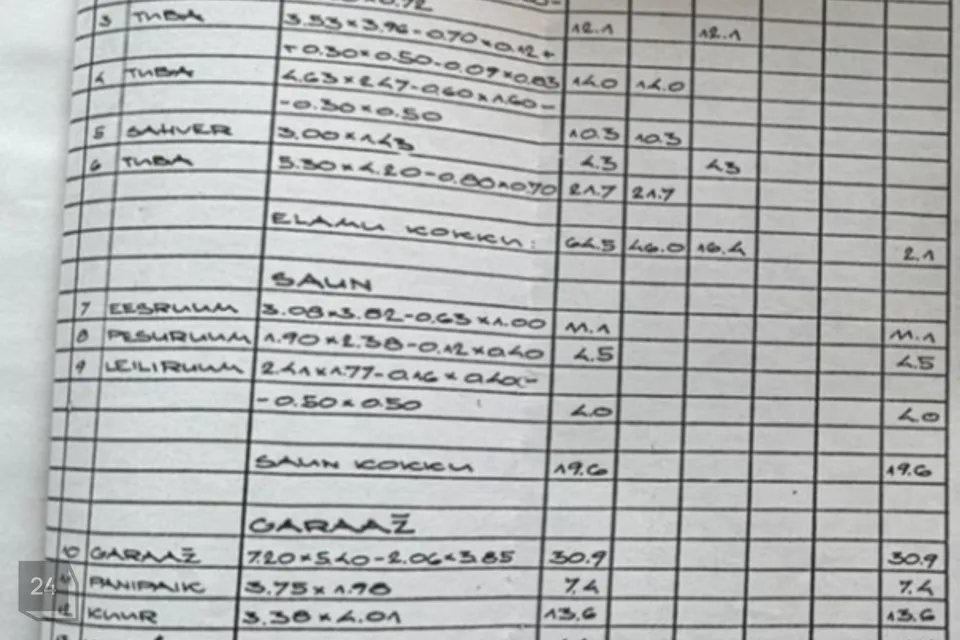 3 TUBA 3.53×3.96-0.70×0.12+ 12.1 12.1
+0.30×0.50-0.09×0.83
4 TUBA 4.63×2.47-0.60×1.60- 14.0 14.0
-0.30×0.50
5 SAHVER 3.00×1.43 10.3 10.3
6 TUBA 5.30×4.20-0.80×0.70 4.3 4.3
21.7 21.7
ELAMU KOKKU: 64.5 46.0 16.4 2.1
SAUN
7 EESRUUM 3.08×3.82-0.63×1.00 11.1 11.1
8 PESURUUM 1.90×2.38-0.12×0.40 4.5 4.5
9 LEILIRUUM 2.41×1.77-0.16×0.40-
-0.50×0.50 4.0 4.0
SAUN KOKKU 19.6 19.6
GARAAŽ
10 GARAAŽ 7.20×5.40-2.06×3.85 30.9 30.9
24 11 PANIPAIK 3.75×1.98 7.4 7.4
12 KUUR 3.38×4.01 13.6 13.6